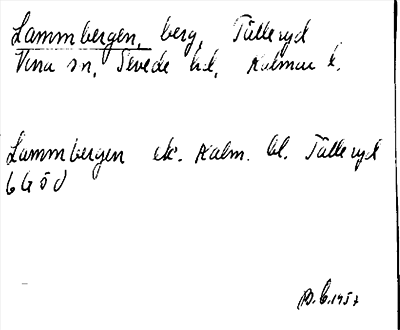 Lammbergen, berg, Tälleryd
Vena sn, Sevede hd, Kalmar l.
Lammbergen ek. Kalm. bl. Tälleryd
6 G 5 d
1957